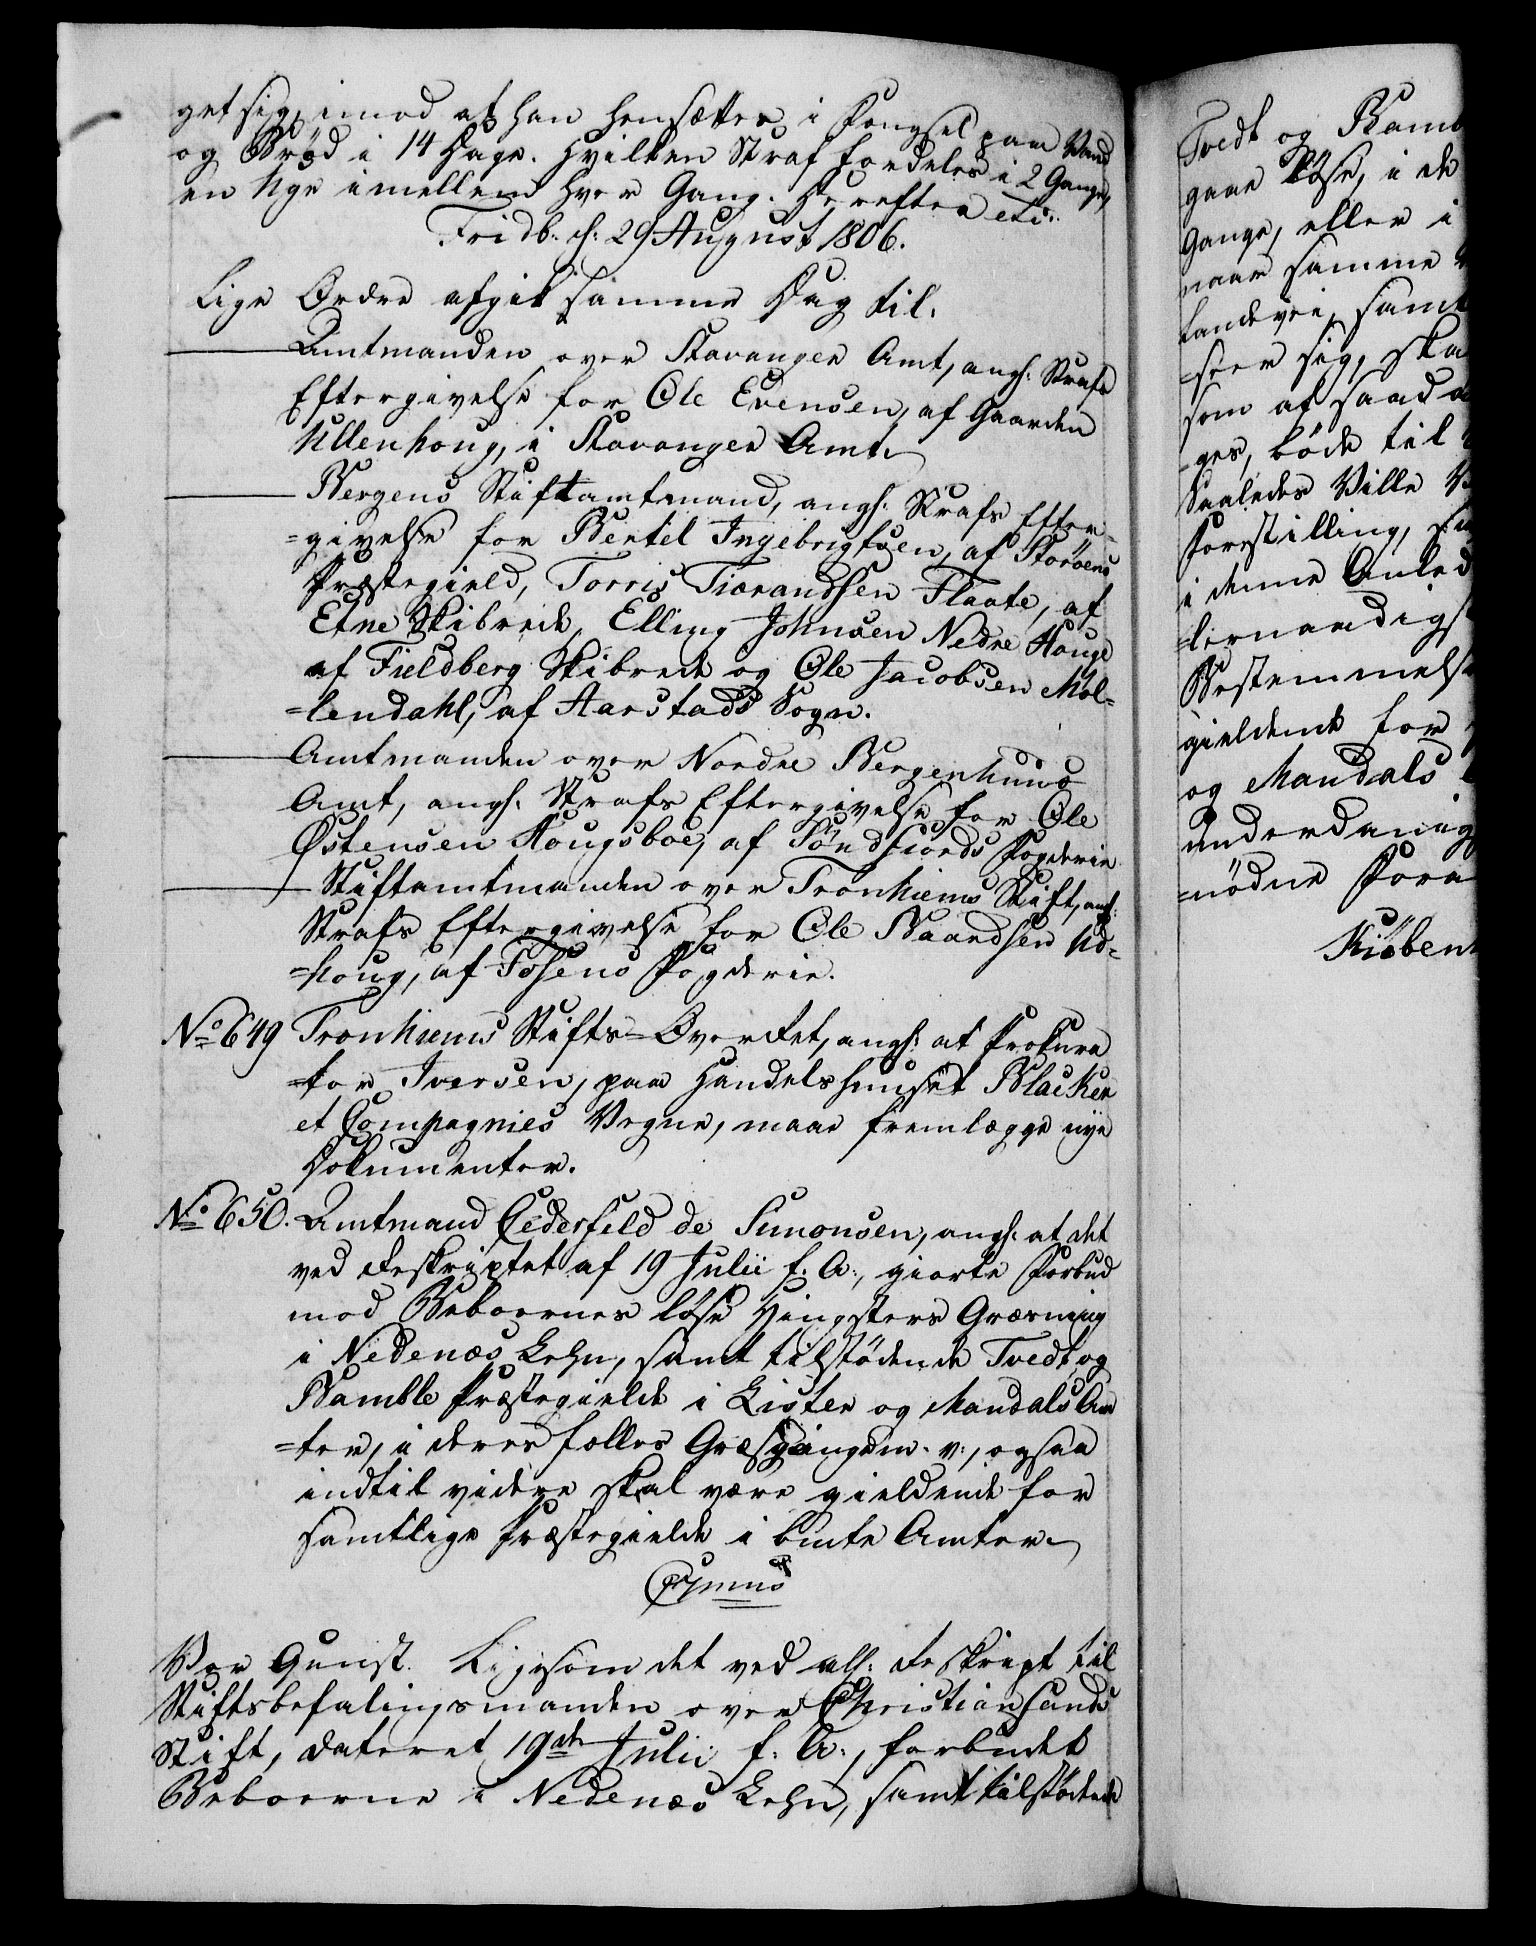 get sig, imod at han hensættes i Fængsel paa Vand
og Brød i 14 Dage. Hvilken Straf fordeles i 2 Gange,
en Uge imellem hver Gang. Herefter etc:.
Fridb: d: 29 August 1806.
Lige Ordre afgik samme Dag til.
Amtmanden over Stavanger Amt, angl: Strafs
Eftergivelse for Ole Evensen, af Gaarden
Ullenhoug, i Stavanger Amt.
Bergens Stiftamtmand, angl: Strafs Efter-
=givelse for Bertel Ingebrigtsen, af Storøens
Præstegield, Torris Tiærandsen Flaate, af
Etne Skibrede, Elling Johnsen Nedre Houge
af Fieldberg Skibrede og Ole Jacobsen Møl-
=lendahl, af Aarstads Sogn.
Amtmanden over Nordre Bergenhuus
Amt, angl: Strafs Eftergivelse for Ole
Østensen Hougsboe, af Søndfiords Fogderie
Stiftamtmanden over Tronhiems Stift, angl:
Strafs Eftergivelse for Ole Baardsen Ud-
=houg, af Fosens Fogderie.
No 649 Tronhiems Stifts-Overret, angl: at Prokura
=tor Iversen, paa Handelshuuset Blacker
et Compagnies Vegne, maae fremlægge nye
Dokumenter.
No 650. Amtmand Cederfeld de Simonsen, angl: at det
ved Reskriptet af 19 Julii f. A:, giorte Forbud
mod Beboernes løse Hingsters Græsning
i Nedenæs Lehn, samt tilstødende Tvedt og
Bamble Præstegielde i Lister og Mandals Am
=ter, i deres fælles Græsgange m. v:, ogsaa
indtil videre skal være gieldende for
samtlige Præstegielde i bmte Amter.
Vor Gunst. Ligesom det ved all: Reskript til
Stiftsbefalingsmanden over Christiansands
Stift, dateret 19de Julii f: A:, forbudet
Beboerne i Nedenæs Lehn, samt tilstødende
Tvedt og Bamb
gaae løse, i de
Gange, eller i
naar samme
Landevei, samt
=seer sig, ska
som af saada
=ges, bøde til
Saaledes Ville V
Forestilling,
i denne Anled
=lernaadigst
Bestemmelse
gieldende for
og Mandals
underdanig
=nødne Fora
Kiøbenh